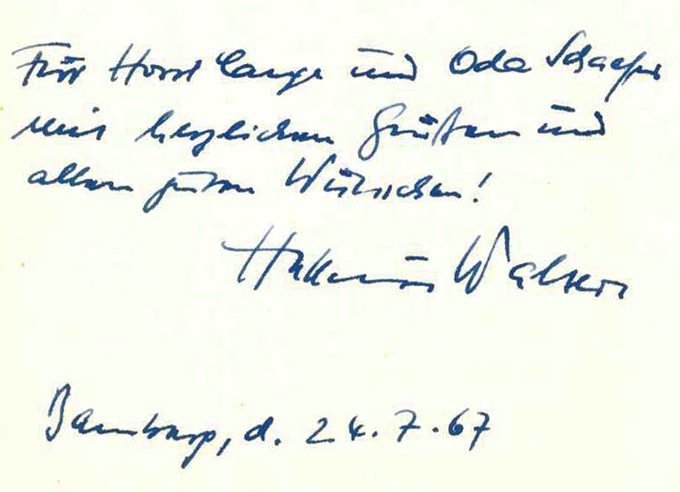 Für Horst Lange und Oda Schaefer
mit herzlichen Grüßen und
allen guten Wünschen!
Bamberg, d. 24.7.67